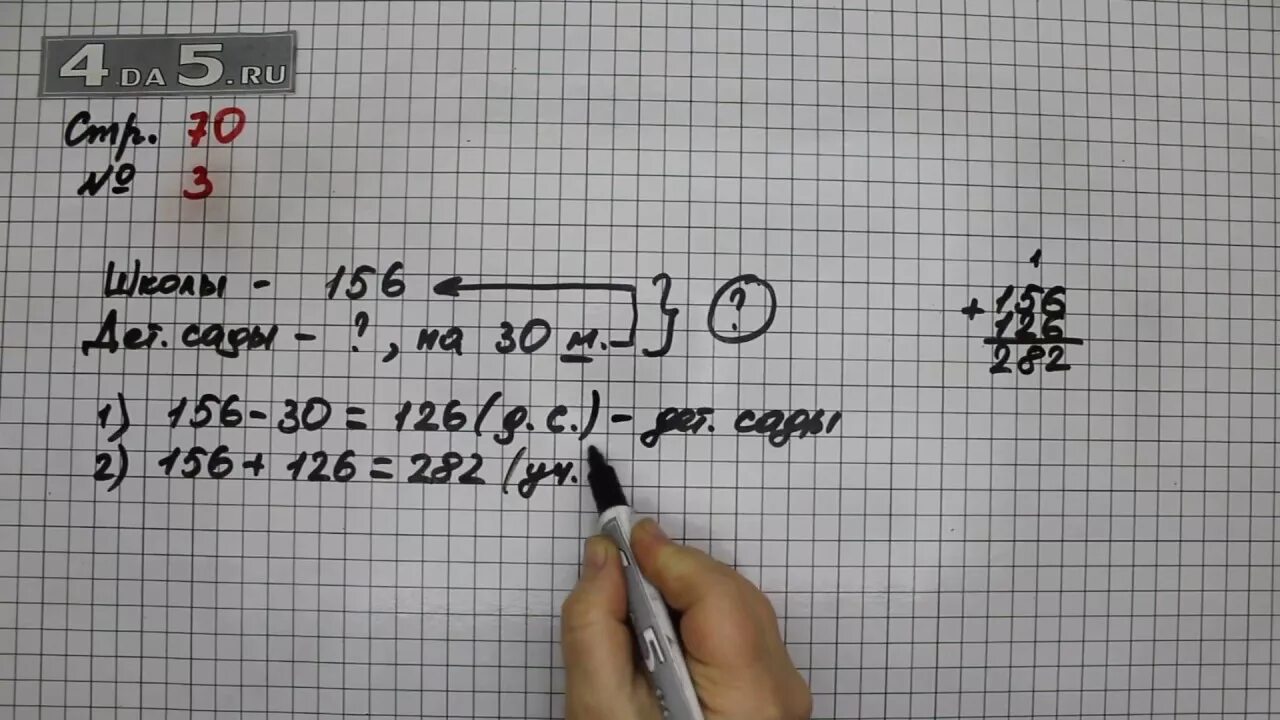 4 DA 5.RU
Стр. 70
№ 3
Школы - 156 } ?
Дет. сады - ?, на 30 м.
1) 156 - 30 = 126 (д. с.) - дет. сады
2) 156 + 126 = 282 (уч.
1
+ 156
126
282
5